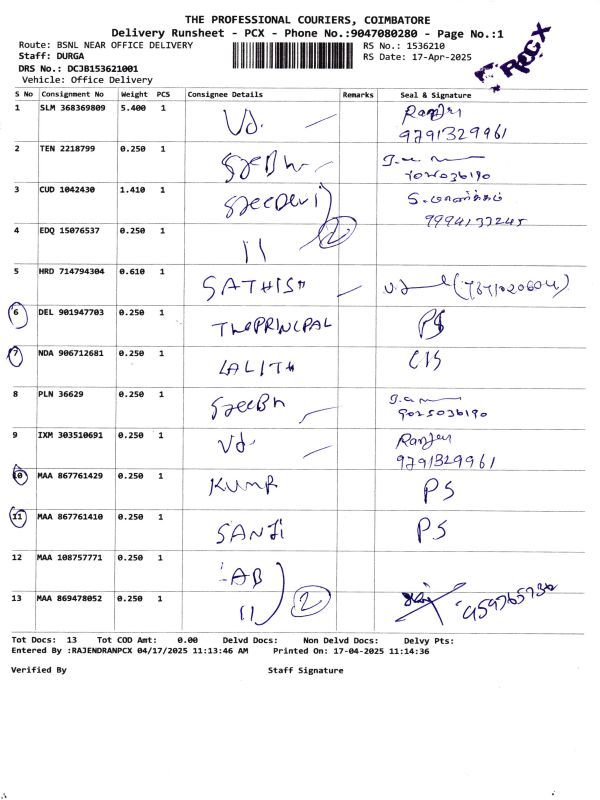 THE PROFESSIONAL COURIERS, COIMBATORE
Delivery Runsheet - PCX - Phone No.:9047080280 - Page No.:1
Route: BSNL NEAR OFFICE DELIVERY RS No.: 1536210
Staff: DURGA RS Date: 17-Apr-2025
DRS No.: DCJB153621001
Vehicle: Office Delivery
PCX
S No Consignment No Weight PCS Consignee Details Remarks Seal & Signature
1 SLM 368369809 5.400 1 Vd. Ranjer
9791329961
2 TEN 2218799 0.250 1 SreeBh
9025036190
3 CUD 1042430 1.410 1 SreeDevi
9994133245
2
4 EDQ 15076537 0.250 1 11
5 HRD 714794304 0.610 1 SATHISH
6 DEL 901947703 0.250 1 THE PRINCPAL PS
7 NDA 906712681 0.250 1 LALITH CIS
8 PLN 36629 0.250 1 SreeBh
9025036190
9 IXM 303510691 0.250 1 Vd. Ranjer
9791329961
10 MAA 867761429 0.250 1 KUMR PS
11 MAA 867761410 0.250 1 SANJI PS
12 MAA 108757771 0.250 1 AB
13 MAA 869478052 0.250 1 11 2
Tot Docs: 13 Tot COD Amt: 0.00 Delvd Docs: Non Delvd Docs: Delvy Pts:
Entered By :RAJENDRANPCX 04/17/2025 11:13:46 AM Printed On: 17-04-2025 11:14:36
Verified By Staff Signature